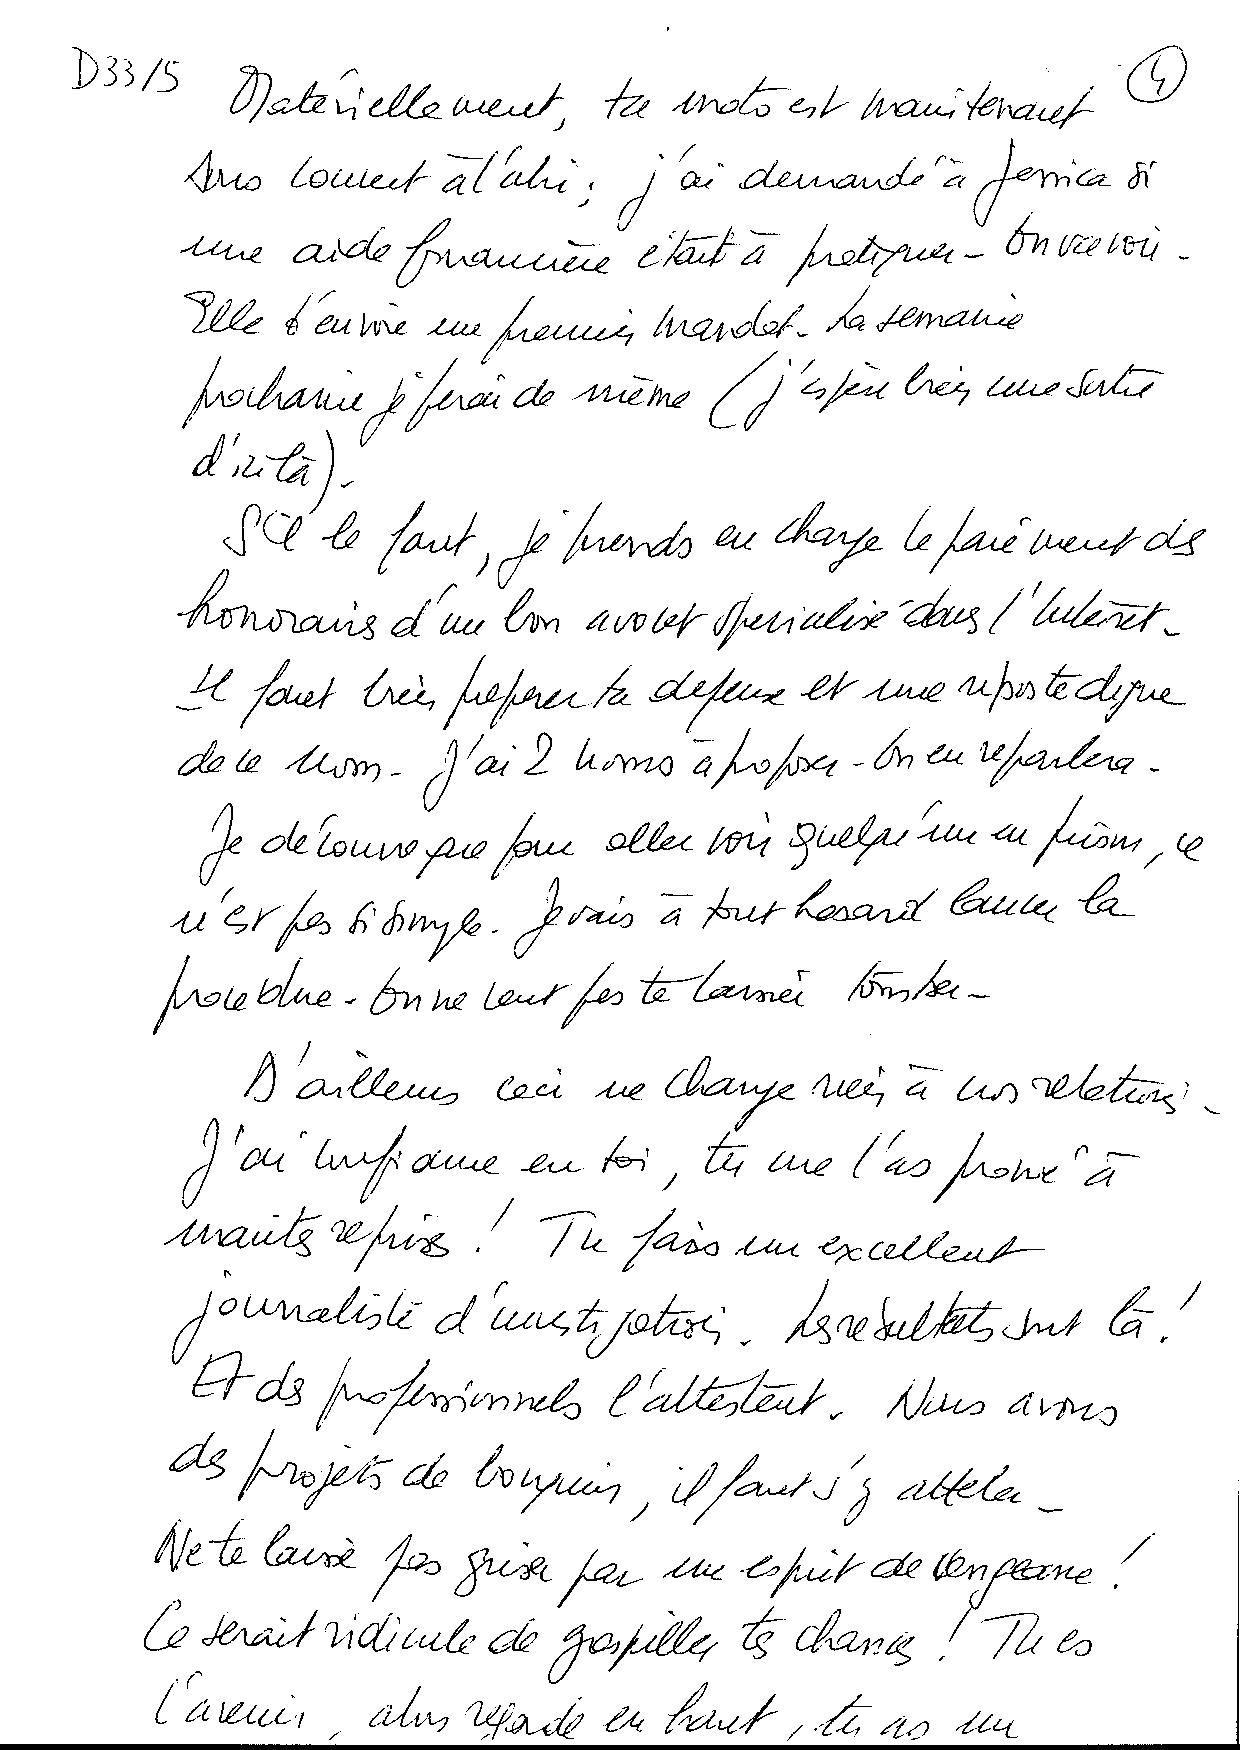 D33/5
4
Matériellement, ta moto est maintenant
sous couvert à l'abri ; j'ai demandé à Jessica si
une aide financière était à pratiquer - On va voir -
Elle t'envoie un premier mandat - La semaine
prochaine je ferai de même (j'espère bien une sortie
d'ici là) -
S'il le faut, je prends en charge le paiement des
honoraires d'un bon avocat spécialisé dans l'Internet -
Il faut bien préparer ta défense et une riposte digne
de ce nom - J'ai 2 noms à proposer - On en reparlera -
Je découvre que pour aller voir quelqu'un en prison, ce
n'est pas si simple. Je vais à tout hasard lancer la
procédure - On ne veut pas te laisser tomber -
D'ailleurs ceci ne change rien à nos relations -
J'ai confiance en toi, tu me l'as prouvé à
maintes reprises ! Tu fais un excellent
journaliste d'investigation. Les résultats sont là !
Et des professionnels l'attestent. Nous avons
des projets de bouquins, il faut s'y atteler -
Ne te laisse pas griser par un esprit de vengeance !
Ce serait ridicule de gaspiller tes chances ! Tu es
l'avenir, alors regarde en haut, tu as un